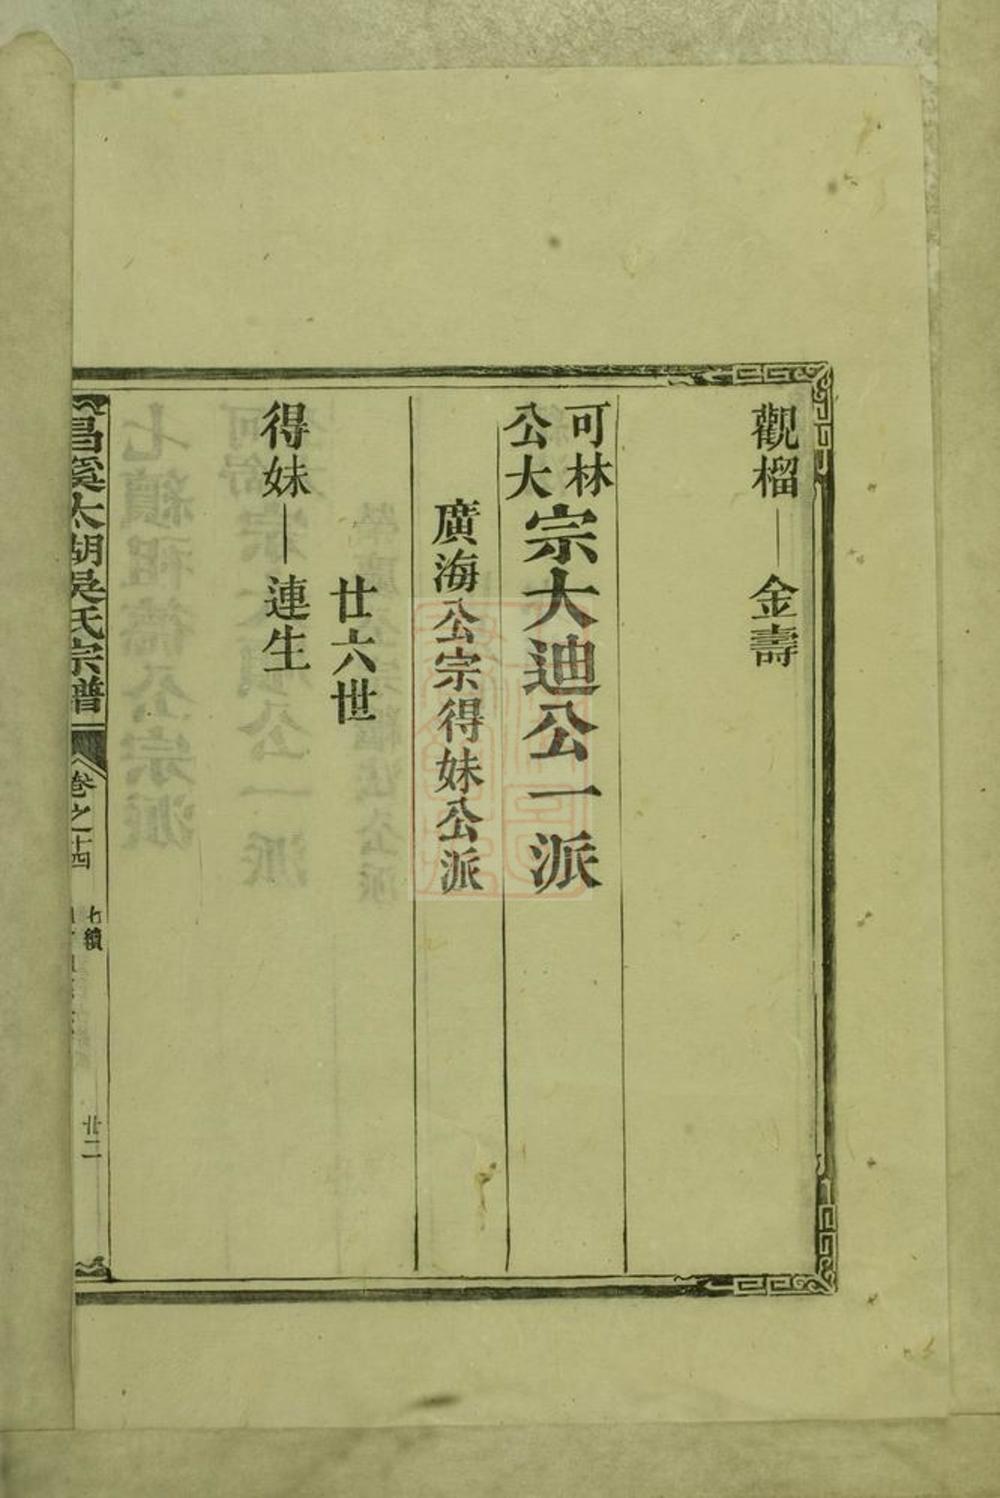 觀榴—金壽
可林
公大
宗大迪公一派
廣海公宗得妹公派
廿六世
得妹—連生
昌溪太湖吳氏宗譜
卷之十四
七續
廿二